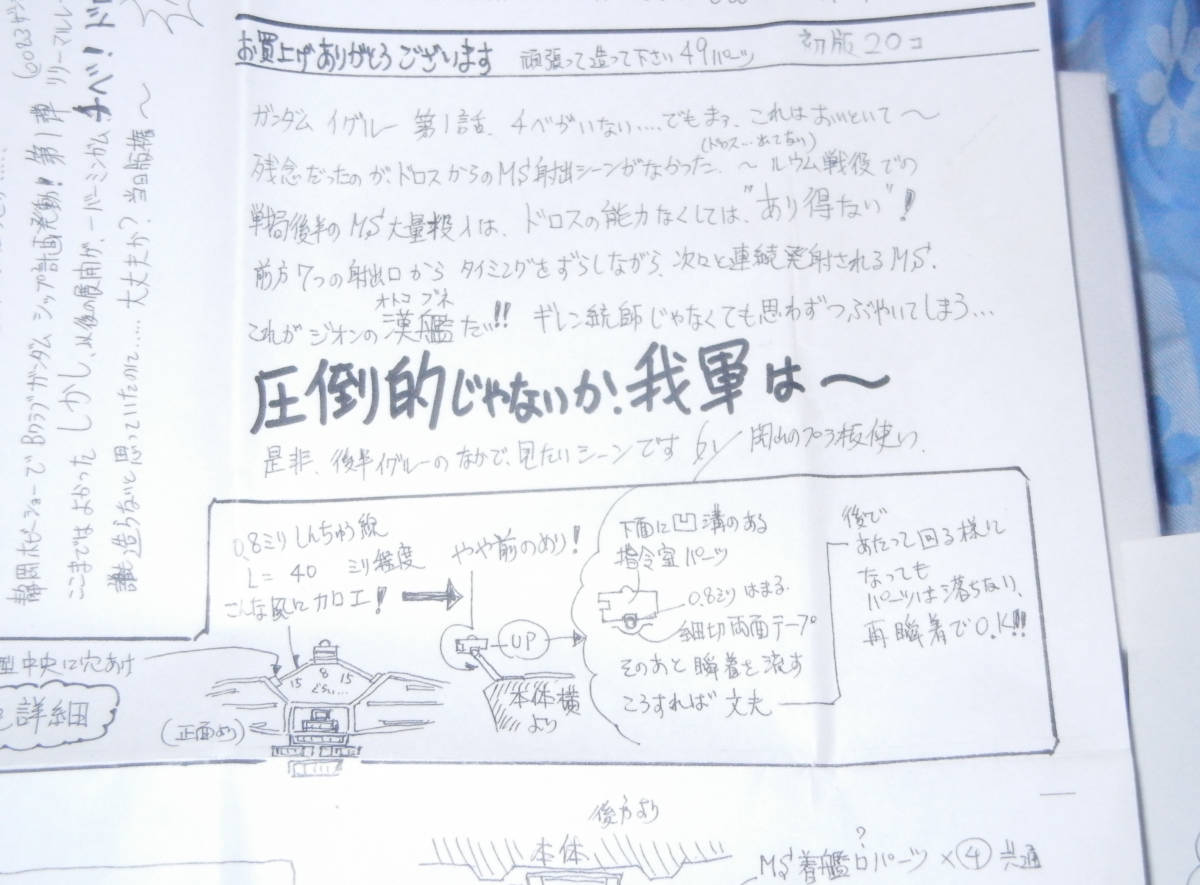 お買上げありがとうございます 頑張って造って下さい 49パーツ 初版20コ
ガンダム イグルー 第1話、チベがいない‥‥でもまァ、これはおいといて〜
(ドロス‥出てない)
残念だったのが、ドロスからのMS射出シーンがなかった、〜 ルウム戦役での
戦局後半のMS大量投入は、ドロスの能力なくしては、"あり得ない"!
前方7つの射出口から タイミングをずらしながら、次々と連続発射されるMS、
オトコ ブネ
これが ジオンの漢艦だい!! ギレン総帥じゃなくても思わずつぶやいてしまう…
圧倒的じゃないか、我軍は〜
是非、後半イグルーのなかで、見たいシーンです by 岡山のプラ板使い、
0.8ミリ しんちゅう線
L= 40 ミリ程度
こんな風に加工!
やや前のめり!
15 8 15
くらい…
(正面より)
UP
本体横
より
下面に凹溝のある
指令室パーツ
0.8ミリ はまる
細切両面テープ
そのあと 瞬着を流す
こうすれば 丈夫
後で
あたって回る様に
なっても
パーツは落ちない、
再瞬着でO.K!!
型中央に穴あけ
詳細
後方より
本体
?
MS着艦口パーツ ×④ 共通
静岡ホビーショーで Bクラブガンダム シップ計画発動! 第1弾 リリーマルレー
(0083ガン
ここまではよかった しかし、以後の展開が、ーバーミンガム チベ! ド
誰も造らないと思っていたのに‥‥ 大丈夫か? 当日版権〜